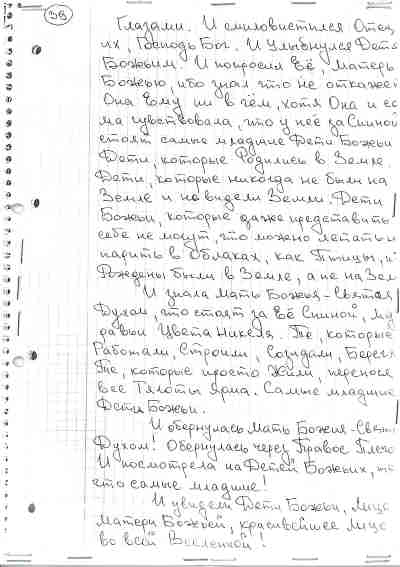 38
Глазами. И смиловистился Отец
их, Господь Бог. И Улыбнулся Детя
Божьим. И попросил Её, Матерь
Божью, ибо знал что не откажет
Она Ему ни в чём, хотя Она и са
ма чувствовала, что у неё за Спиной
стоят самые младшие Дети Божьи
Дети, которые Родились в Земле.
Дети, которые никогда не были на
Земле и не видели Земли. Дети
Божьи, которые даже представить
себе не могут, что можно летать и
парить в Облаках, как Птицы, и
Рождены были в Земле, а не на Зем
И знала Мать Божья - Святая
Духом, что стоят за Её Спиной, Му
равьи Цвета Никеля. Те, которые
Работали, Строили, Созидали, Берегл
Те, которые просто Жили, перенося
все Тяготы Ярма. Самые младшие
Дети Божьи.
И обернулась Мать Божия - Святы
Духом! Обернулась через Правое Плечо
И посмотрела на Детей Божьих,
что самые младшие!
И увидели Дети Божьи, Лицо
Матери Божьей, красивейшее Лицо
во всей Вселенной!